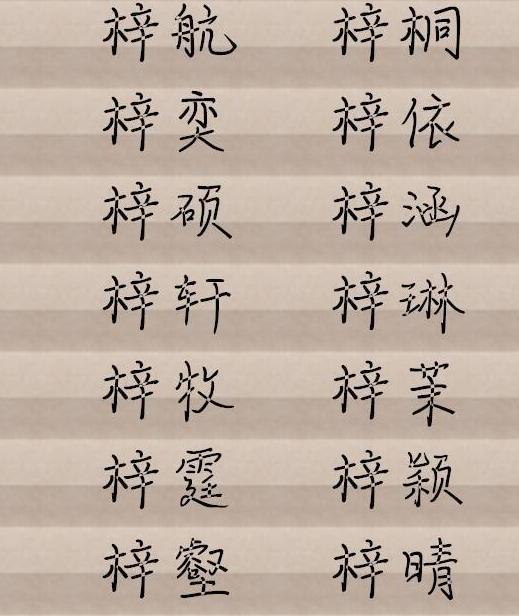 梓航 梓桐
梓奕 梓依
梓硕 梓涵
梓轩 梓琳
梓牧 梓茉
梓霆 梓颖
梓壑 梓晴